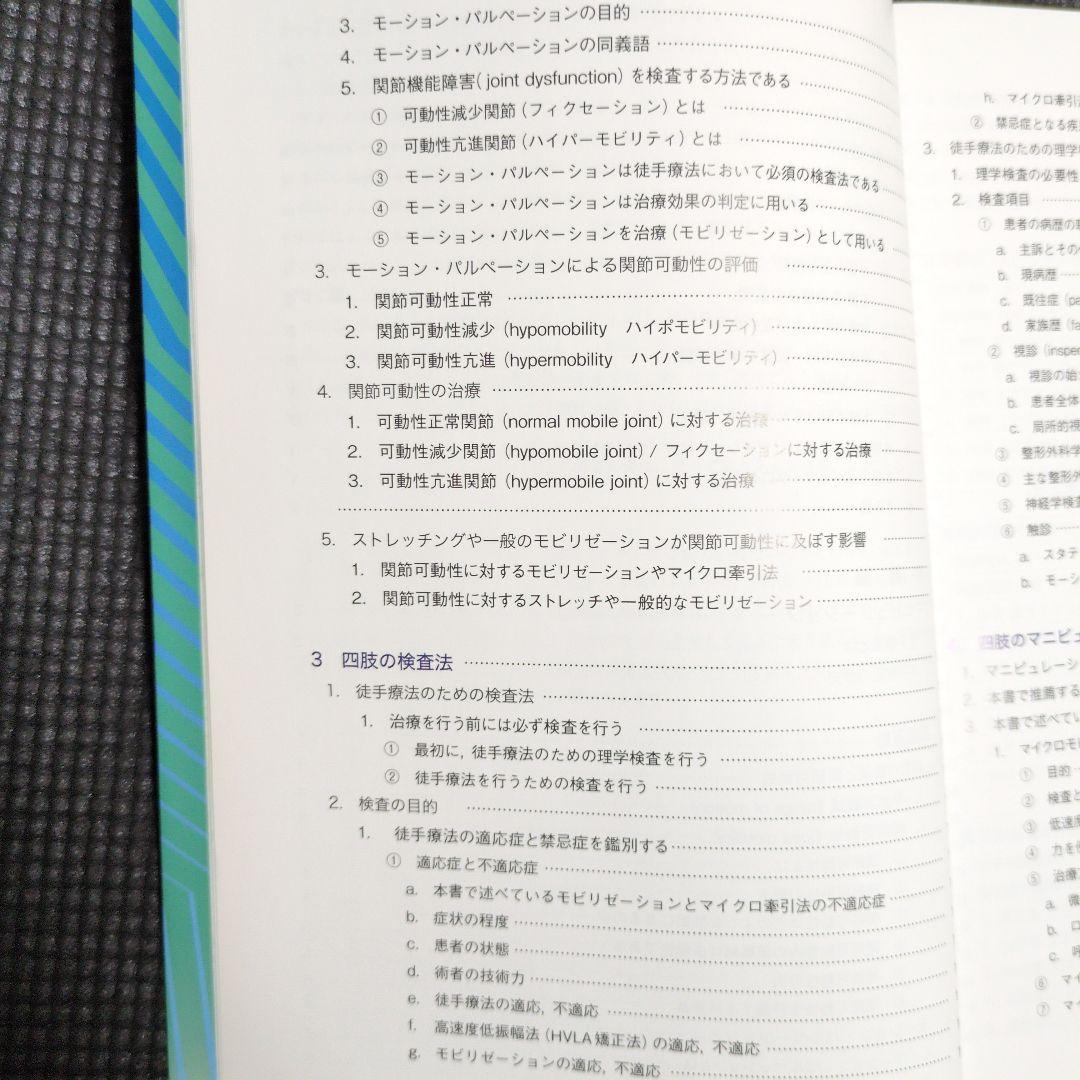 3. モーション・パルペーションの目的
4. モーション・パルペーションの同義語
5. 関節機能障害(joint dysfunction)を検査する方法である
① 可動性減少関節(フィクセーション)とは
② 可動性亢進関節(ハイパーモビリティ)とは
③ モーション・パルペーションは徒手療法において必須の検査法である
④ モーション・パルペーションは治療効果の判定に用いる
⑤ モーション・パルペーションを治療(モビリゼーション)として用いる
3. モーション・パルペーションによる関節可動性の評価
1. 関節可動性正常
2. 関節可動性減少(hypomobility ハイポモビリティ)
3. 関節可動性亢進(hypermobility ハイパーモビリティ)
4. 関節可動性の治療
1. 可動性正常関節(normal mobile joint)に対する治療
2. 可動性減少関節(hypomobile joint)/ フィクセーションに対する治療
3. 可動性亢進関節(hypermobile joint)に対する治療
5. ストレッチングや一般のモビリゼーションが関節可動性に及ぼす影響
1. 関節可動性に対するモビリゼーションやマイクロ牽引法
2. 関節可動性に対するストレッチや一般的なモビリゼーション
3 四肢の検査法
1. 徒手療法のための検査法
1. 治療を行う前には必ず検査を行う
① 最初に, 徒手療法のための理学検査を行う
② 徒手療法を行うための検査を行う
2. 検査の目的
1. 徒手療法の適応症と禁忌症を鑑別する
① 適応症と不適応症
a. 本書で述べているモビリゼーションとマイクロ牽引法の不適応症
b. 症状の程度
c. 患者の状態
d. 術者の技術力
e. 徒手療法の適応, 不適応
f. 高速度低振幅法(HVLA矯正法)の適応, 不適応
g. モビリゼーションの適応, 不適応
h. マイクロ牽引
② 禁忌症となる疾
3. 徒手療法のための理学
1. 理学検査の必要性
2. 検査項目
① 患者の病歴の
a. 主訴とその
b. 現病歴
c. 既往症(pa
d. 家族歴(fa
② 視診(inspe
a. 視診の始
b. 患者全体
c. 局所的視
③ 整形外科学
④ 主な整形外
⑤ 神経学検査
⑥ 触診
a. スタテ
b. モーシ
4 四肢のマニピュ
1. マニピュレーシ
2. 本書で推薦する
3. 本書で述べてい
1. マイクロモ
① 目的
② 検査と
③ 低速度
④ 力を
⑤ 治療
a. 微
b. ロ
c. 呼
⑥ マイ
⑦ マイ